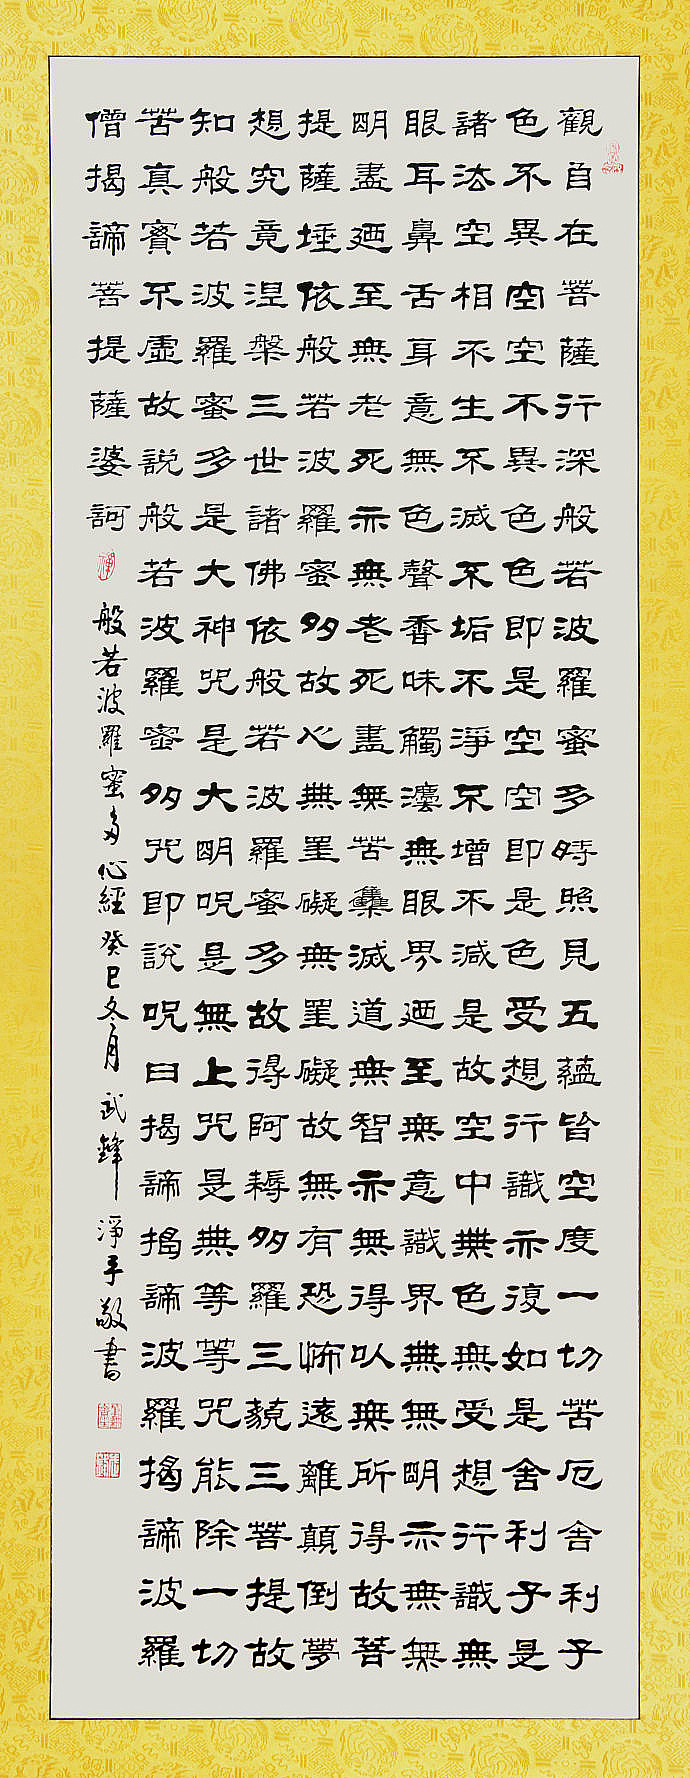 觀自在菩薩行深般若波羅蜜多時照見五蘊皆空度一切苦厄舍利子
色不異空空不異色色即是空空即是色受想行識亦復如是舍利子是
諸法空相不生不滅不垢不淨不增不減是故空中無色無受想行識無
眼耳鼻舌身意無色聲香味觸灋無眼界廼至無意識界無無明亦無無
明盡廼至無老死亦無老死盡無苦集滅道無智亦無得以無所得故菩
提薩埵依般若波羅蜜多故心無罣礙無罣礙故無有恐怖遠離顛倒夢
想究竟涅槃三世諸佛依般若波羅蜜多故得阿耨多羅三藐三菩提故
知般若波羅蜜多是大神咒是大明咒是無上咒是無等等咒能除一切
苦真實不虛故說般若波羅蜜多咒即說咒曰揭諦揭諦波羅揭諦波羅
僧揭諦菩提薩婆訶
般若波羅蜜多心經癸巳冬月武鋒淨手敬書